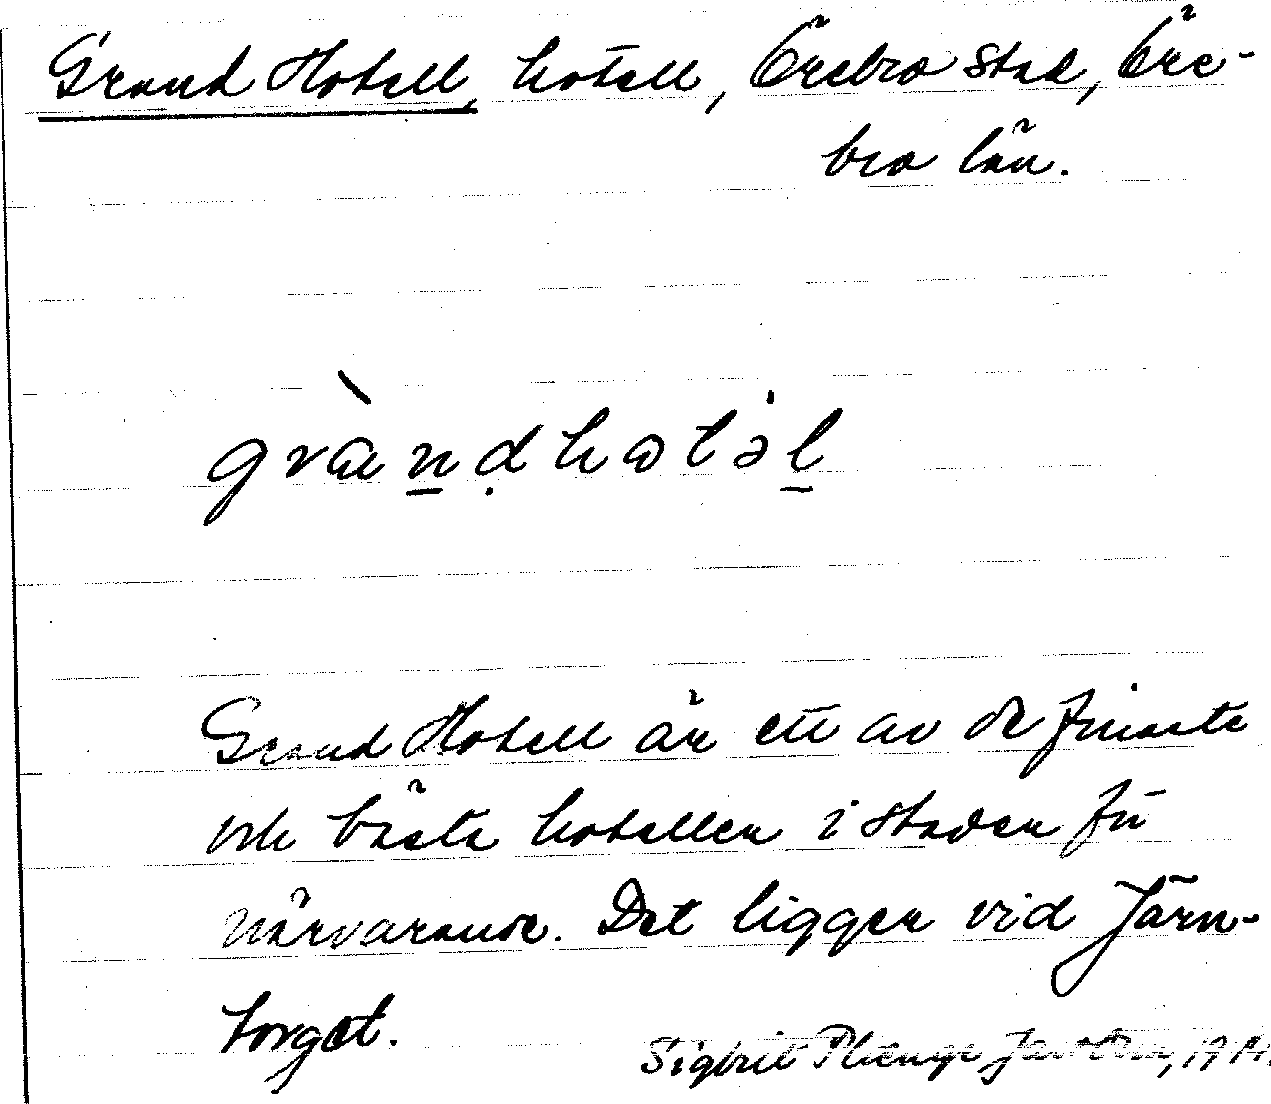 Grand Hotell, hotell, Örebro stad, Öre-
bro län.
gràṉḍhotə̍ḻ
Grand Hotell är ett av de finaste
och bästa hotellen i staden för
närvarande. Det ligger vid Järn-
torget.
Sigbrit Plænge Jacobson,